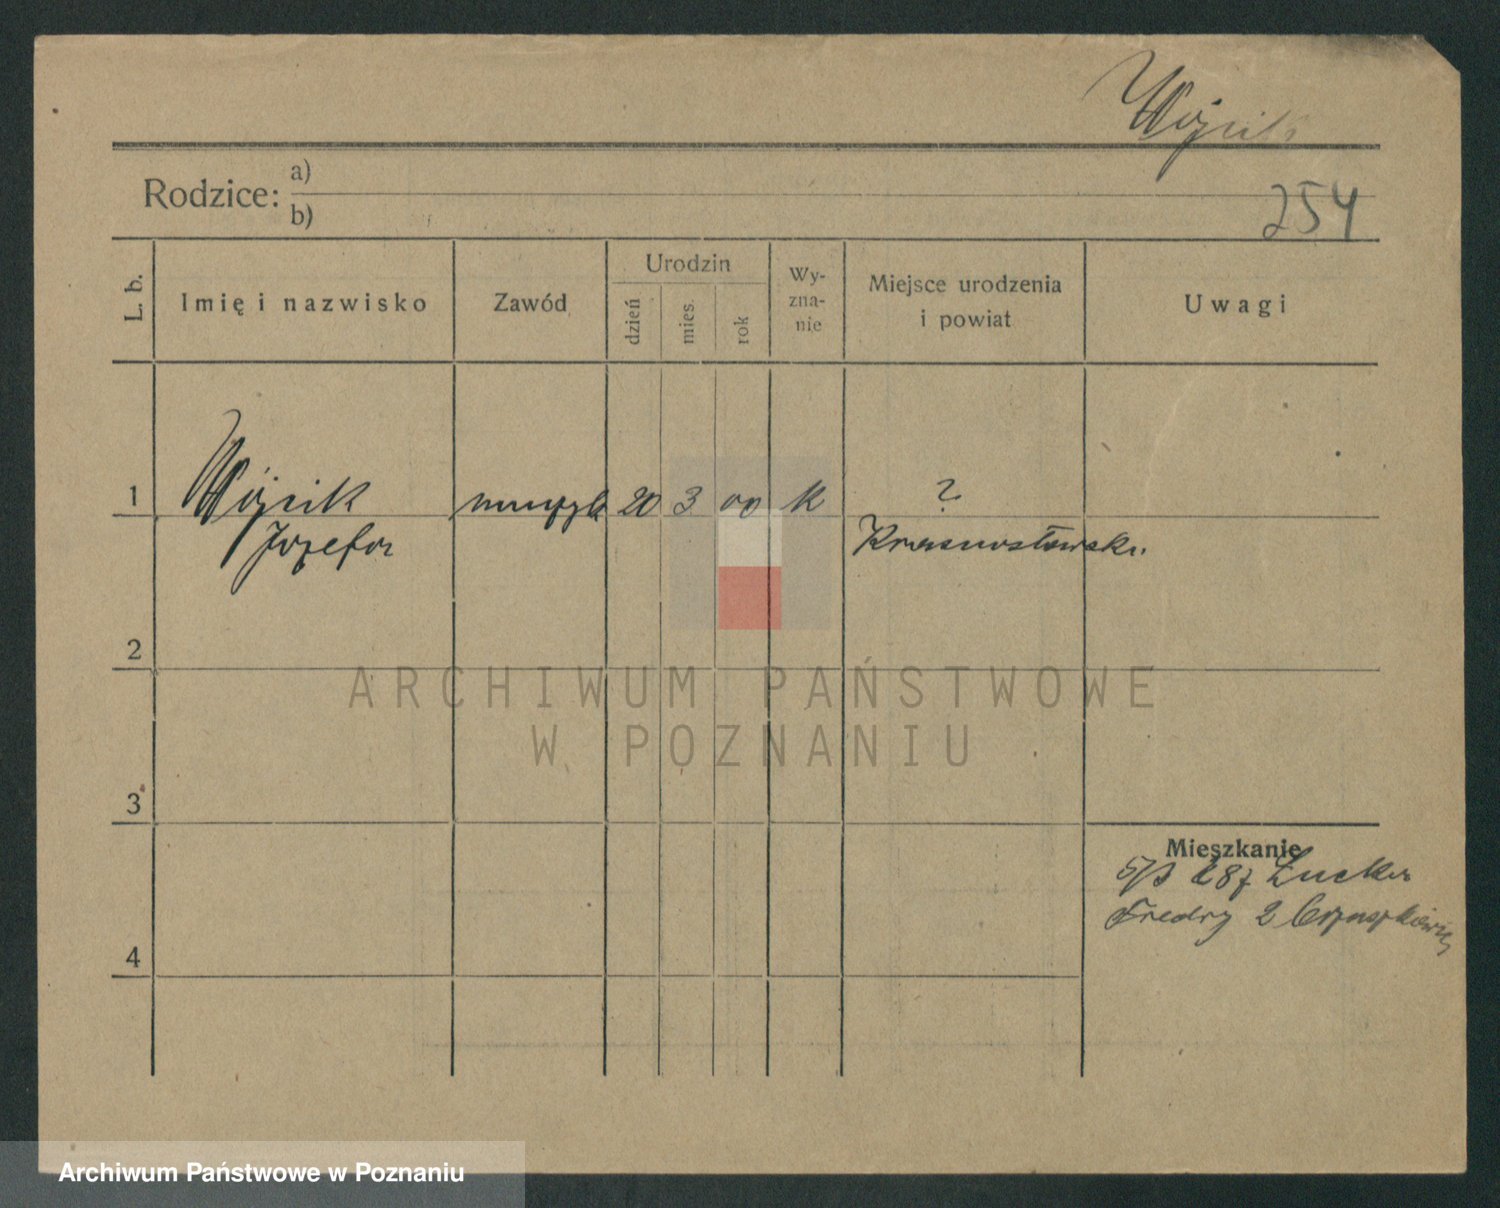 Wójcik
Rodzice: a)
b)
254
L. b.
Imię i nazwisko
Zawód
Urodzin
dzień
mies.
rok
Wy-
zna-
nie
Miejsce urodzenia
i powiat
Uwagi
1 Wójcik muzyk 20 3 00 k ?
Józefa Krasnostawski
2
3
4
Mieszkanie
287
Fredry 2
ARCHIWUM PAŃSTWOWE
W POZNANIU
Archiwum Państwowe w Poznaniu